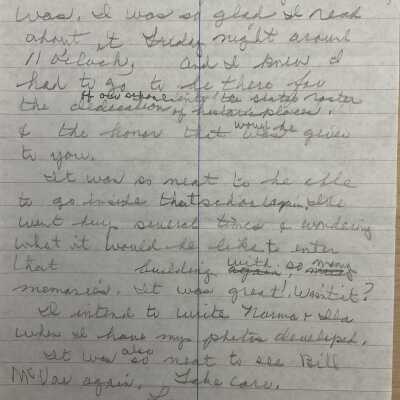 was. I was so glad I read
about it Friday night around
11 o'clock, and I knew I
had to go to be there for
to the states roster
the dedication of historic places.
would be
& the honor that was given
to you.
It was so neat to be able
to go inside that school again. I've
went by several times & wondering
what it would be like to enter
that building again, with so many
memories. It was great! Wasn't it?
I intend to write Norma & Ila
when I have my photos developed.
also
It was so neat to see Bill
McVae again. Take care,